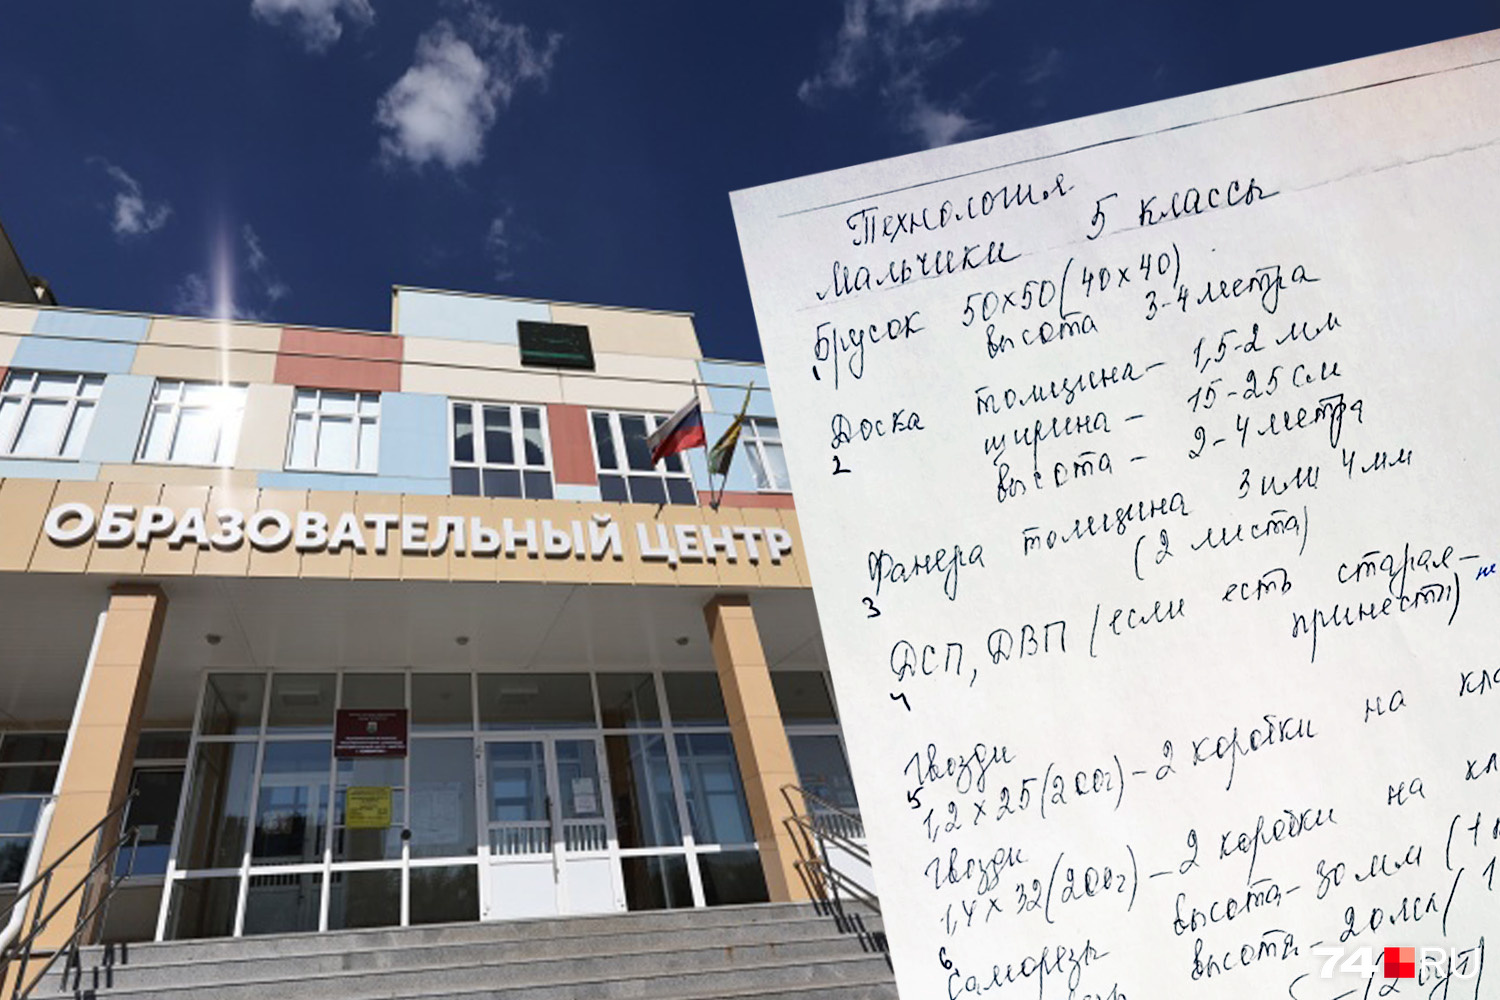 ОБРАЗОВАТЕЛЬНЫЙ ЦЕНТР
Технология
Мальчики 5 классы
Брусок 50х50(40х40)
1 высота 3-4 метра
Доска толщина - 1,5-2 мм
2 ширина - 15-25 см
высота - 2-4 метра
Фанера толщина 3 или 4 мм
3 (2 листа)
ДСП, ДВП (если есть старая-
4 принести) не
Гвозди
5
1,2 х 25(200г) - 2 коробки на кла
Гвозди
1,4 х 32(200г) - 2 коробки на кл
6
Саморезы высота - 30 мм (1 к
высота - 20мм (1
- (2 бут)
74.RU